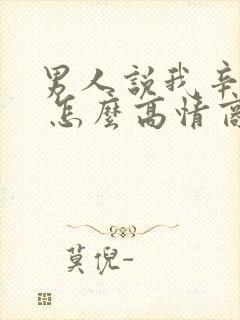 男人說我辛
怎麼高情商
莫倪-